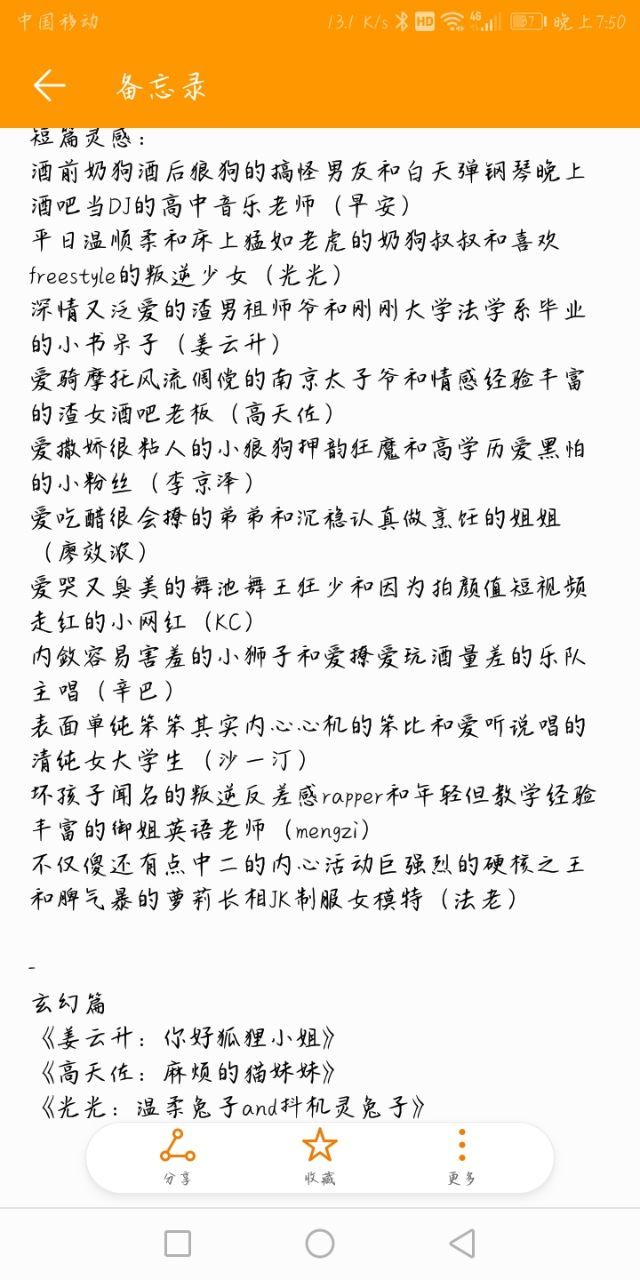 中国移动 13.1 K/s HD 4G 87 晚上7:50
备忘录
短篇灵感：
酒前奶狗酒后狼狗的搞怪男友和白天弹钢琴晚上
酒吧当DJ的高中音乐老师（早安）
平日温顺柔和床上猛如老虎的奶狗叔叔和喜欢
freestyle的叛逆少女（光光）
深情又泛爱的渣男祖师爷和刚刚大学法学系毕业
的小书呆子（姜云升）
爱骑摩托风流倜傥的南京太子爷和情感经验丰富
的渣女酒吧老板（高天佐）
爱撒娇很粘人的小狼狗押韵狂魔和高学历爱黑怕
的小粉丝（李京泽）
爱吃醋很会撩的弟弟和沉稳认真做烹饪的姐姐
（廖效浓）
爱哭又臭美的舞池舞王狂少和因为拍颜值短视频
走红的小网红（KC）
内敛容易害羞的小狮子和爱撩爱玩酒量差的乐队
主唱（辛巴）
表面单纯笨笨其实内心心机的笨比和爱听说唱的
清纯女大学生（沙一汀）
坏孩子闻名的叛逆反差感rapper和年轻但教学经验
丰富的御姐英语老师（mengzi）
不仅傻还有点中二的内心活动巨强烈的硬核之王
和脾气暴的萝莉长相JK制服女模特（法老）
-
玄幻篇
《姜云升：你好狐狸小姐》
《高天佐：麻烦的猫妹妹》
《光光：温柔兔子and抖机灵兔子》
分享 收藏 更多